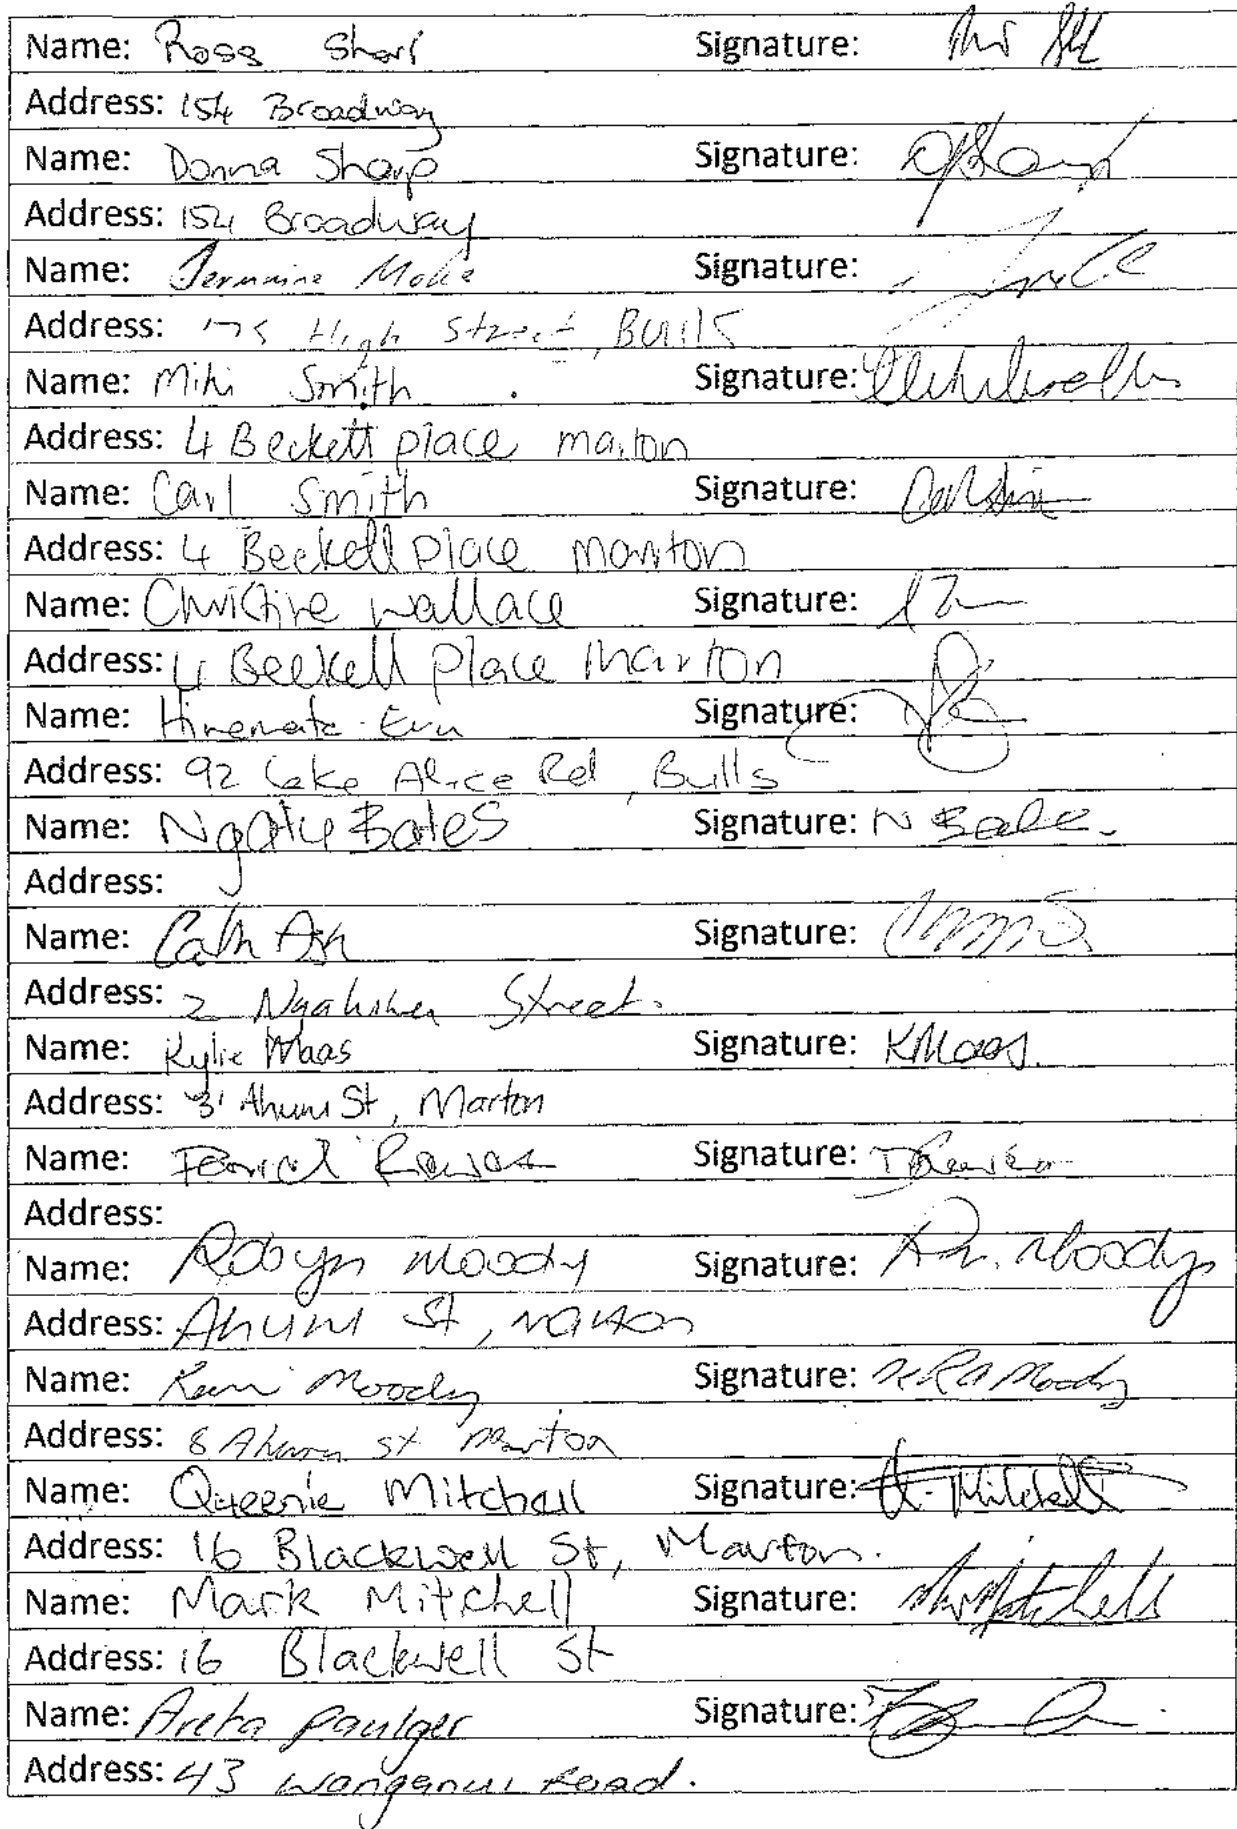 Name: Ross Signature:
Address: 154 Broadway
Name: Donna Sharp Signature:
Address: 154 Broadway
Name: Jermaine Signature:
Address: 175 High Street, Bulls
Name: Miki Smith Signature:
Address: 4 Beckett place marton
Name: Carl Smith Signature:
Address: 4 Beckett place marton
Name: Christine wallace Signature:
Address: 4 Beckett place marton
Name: Signature:
Address: 92 Lake Alice Rd, Bulls
Name: Bates Signature: N
Address:
Name: Cath Ash Signature:
Address: 2 Street.
Name: Kylie Maas Signature: KMaas.
Address: 31 Ahuru St, Marton
Name: Signature:
Address:
Name: Robyn Moody Signature: Moody
Address: Ahuru St, Marton
Name: Moody Signature: Moody
Address: 8 Ahuru st Marton
Name: Queenie Mitchell Signature: Mitchell
Address: 16 Blackwell St, Marton.
Name: Mark Mitchell Signature: Mitchell
Address: 16 Blackwell St
Name: Areta Paulger Signature:
Address: 43 Wanganui Road.